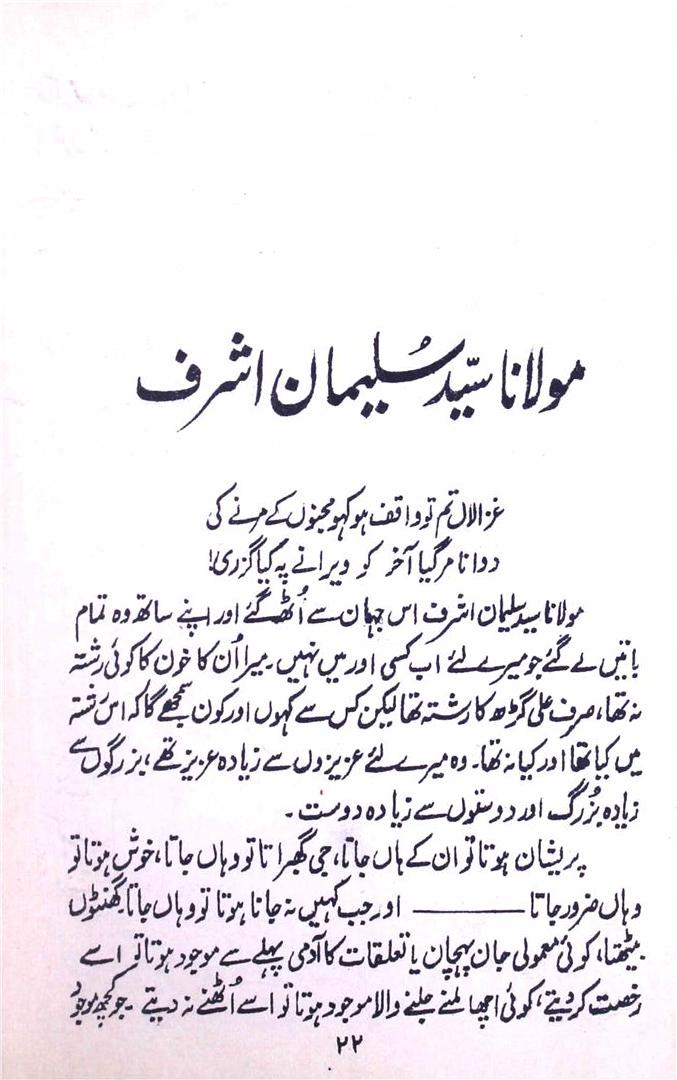 مولانا سیّد سُلیمان اشرف
غزالاں تم تو واقف ہو کہو مجنوں کے مرنے کی
دوانا مر گیا آخر کو ویرانے پہ کیا گزری!
مولانا سید سلیمان اشرف اس جہان سے اُٹھ گئے اور اپنے ساتھ وہ تمام
باتیں لے گئے جو میرے لئے اب کسی اور میں نہیں۔ میرا اُن کا خون کا کوئی رشتہ
نہ تھا، صرف علی گڑھ کا رشتہ تھا لیکن کس سے کہوں اور کون سمجھے گا کہ اس رشتہ
میں کیا تھا اور کیا نہ تھا۔ وہ میرے لئے عزیزوں سے زیادہ عزیز تھے، بزرگوں سے
زیادہ بزُرگ اور دوستوں سے زیادہ دوست۔
پریشان ہوتا تو ان کے ہاں جاتا، جی گھبراتا تو وہاں جاتا، خوش ہوتا تو
وہاں ضرور جاتا ——— اور جب کہیں نہ جانا ہوتا تو وہاں جاتا۔ گھنٹوں
بیٹھتا، کوئی معمولی جان پہچان یا تعلقات کا آدمی پہلے سے موجود ہوتا تو اسے
رخصت کر دیتے، کوئی اچھا ملنے جلنے والا موجود ہوتا تو اسے اُٹھنے نہ دیتے۔ جو کچھ موجود
۲۲